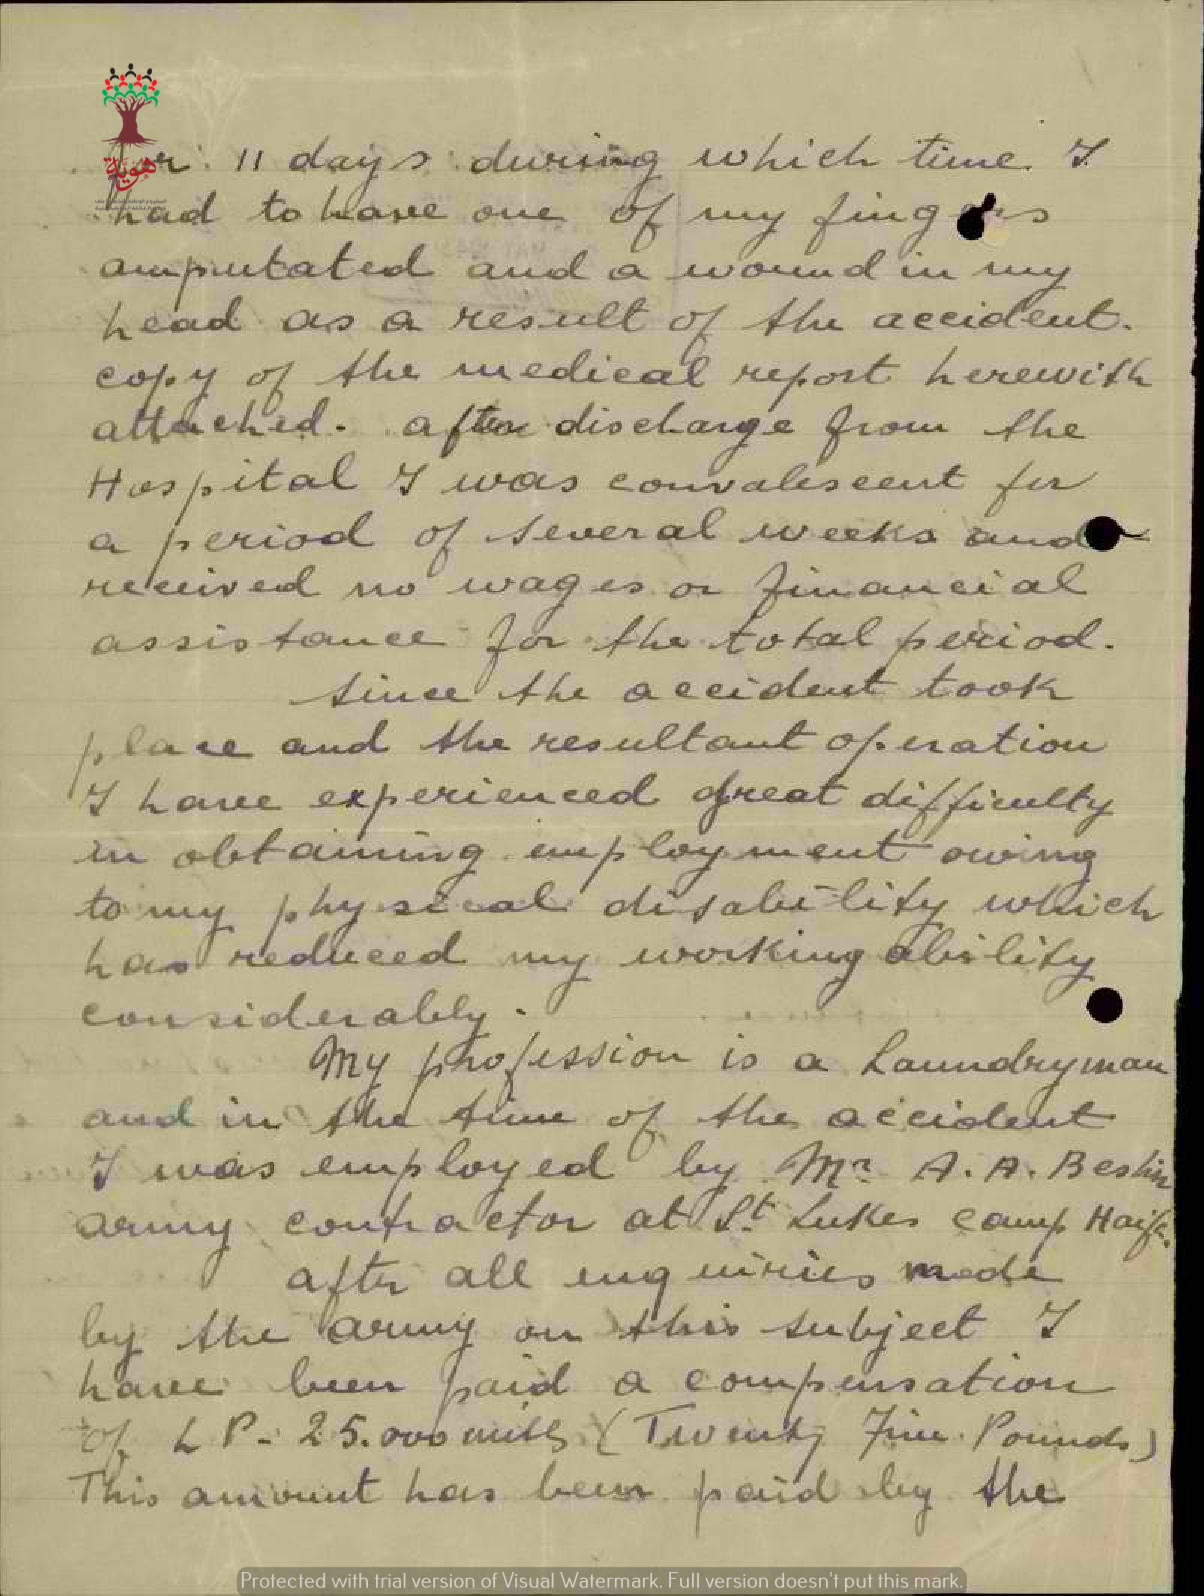 هوية
for 11 days during which time I
had to have one of my fingers
amputated and a wound in my
head as a result of the accident.
copy of the medical report herewith
attached. after discharge from the
Hospital I was convalescent for
a period of several weeks and
received no wages or financial
assistance for the total period.
Since the accident took
place and the resultant operation
I have experienced great difficulty
in obtaining employment owing
to my physical disability which
has reduced my working ability
considerably.
My profession is a Laundryman
and in the time of the accident
I was employed by Mr. A. A. Beshir
army contractor at St. Lukes camp Haifa.
after all enquiries made
by the army on this subject I
have been paid a compensation
of LP. 25.000 mills (Twenty Five Pounds)
This amount has been paid by the
Protected with trial version of Visual Watermark. Full version doesn't put this mark.